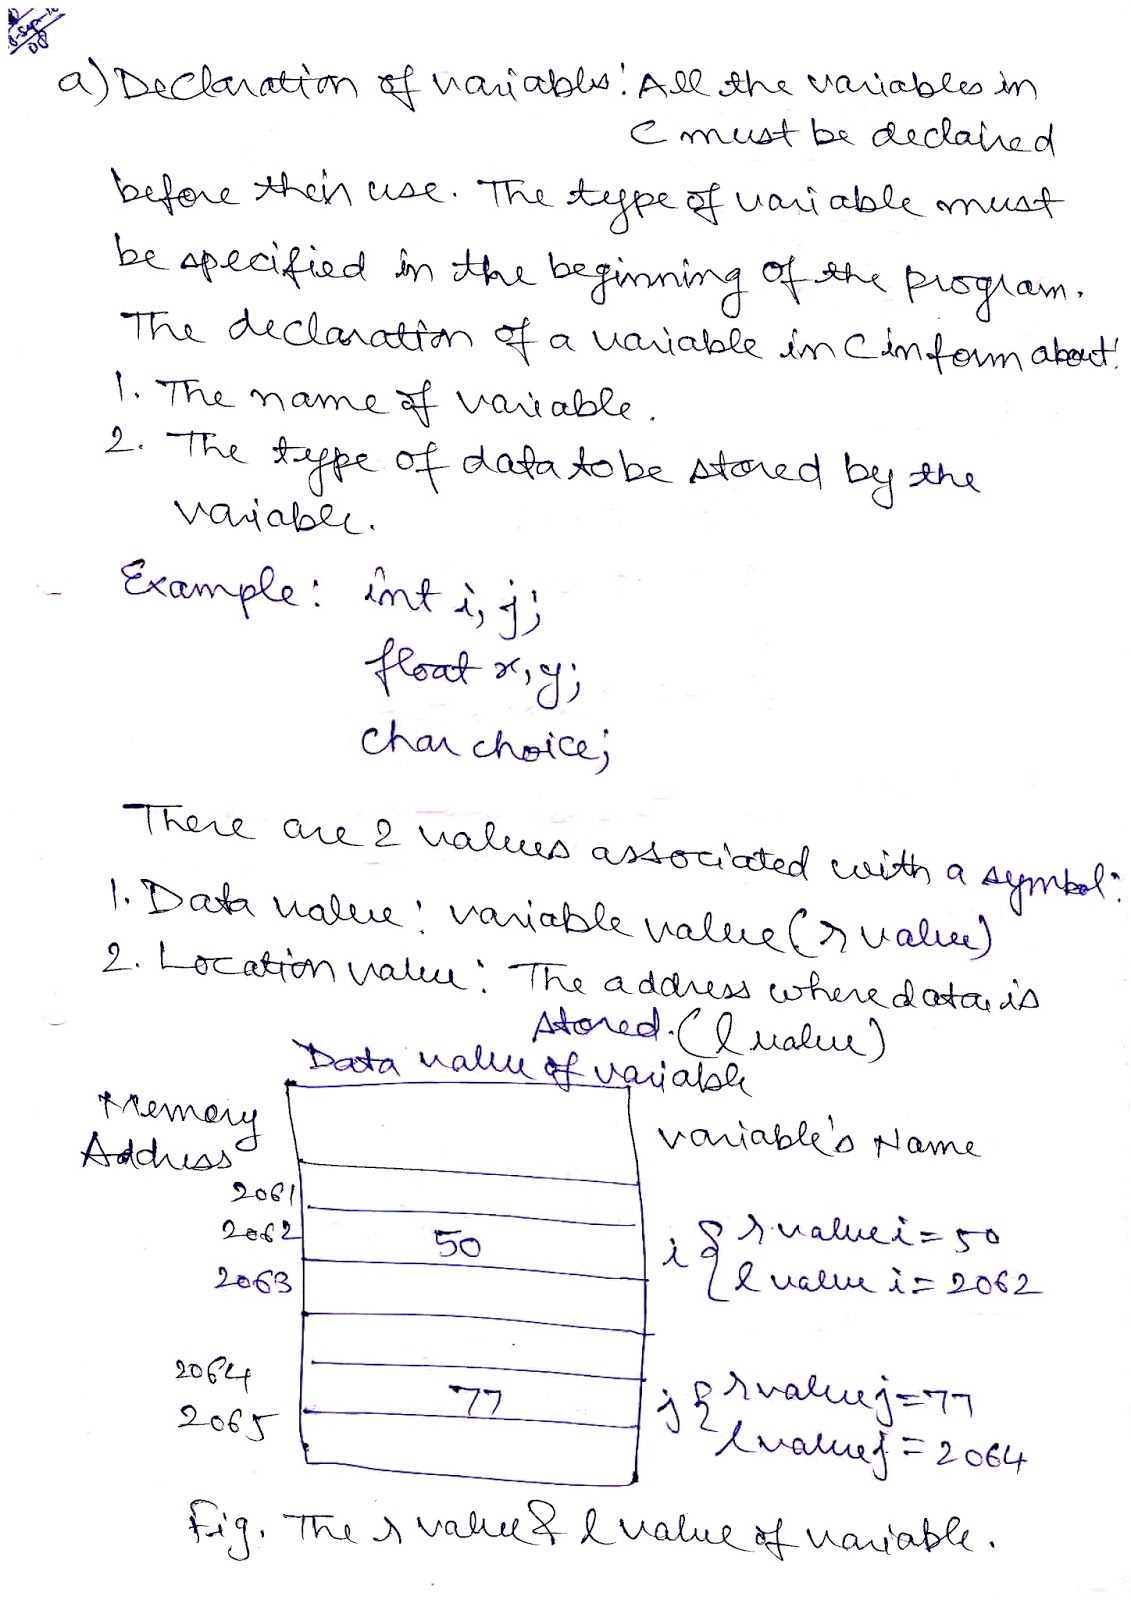 a) Declaration of variables: All the variables in
C must be declaired
before their use. The type of variable must
be specified in the beginning of the program.
The declaration of a variable in C inform about:
1. The name of variable.
2. The type of data to be stored by the
variable.
Example: int i, j;
float x, y;
char choice;
There are 2 values associated with a symbol:
1. Data value: variable value (r value)
2. Location value: The address where data is
stored. (l value)
Data value of variable
Memory
Address
variable's Name
2061
2062 50 i { r value i = 50
2063 l value i = 2062
2064 77 j { r value j = 77
2065 l value j = 2064
Fig. The r value & l value of variable.